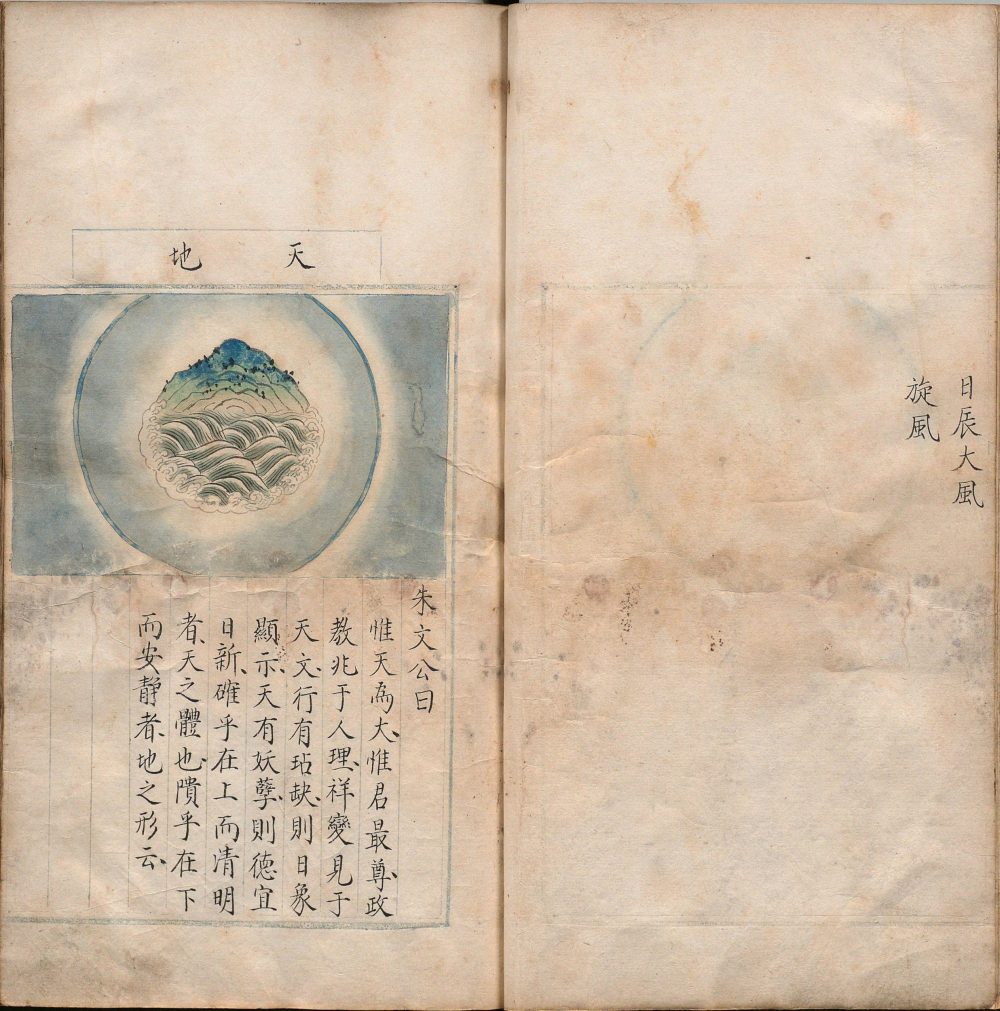 日辰大風
旋風
天地
朱文公曰
惟天為大惟君最尊政
教兆于人理祥變見于
天文行有玷缺則日象
顯示天有妖孽則德宜
日新確乎在上而清明
者天之體也隤乎在下
而安靜者地之形云